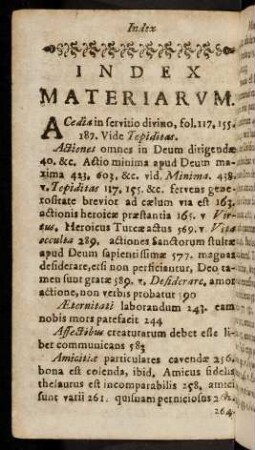 Index
INDEX
MATERIARVM.
ACedia in servitio divino, fol. 117. 155.
187. Vide Tepiditas.
Actiones omnes in Deum dirigendæ
40. &c. Actio minima apud Deum ma-
xima 423. 603. &c. vid. Minima. 438.
v. Tepiditas 117. 155. &c. fervens gene-
rositate brevior ad cælum via est 163.
actionis heroicæ præstantia 165. v Vir-
tus, Heroicus Turcæ actus 569. v Vita
occulta 289. actiones Sanctorum stultæ
apud Deum sapientissimæ 577. magna
desiderare, etsi non perficiantur, Deo ta-
men sunt gratæ 589. v. Desiderare, amor
actione, non verbis probatur 590
Æternitati laborandum 243. eam
nobis mors patefacit 244
Affectibus creaturarum debet esse li-
ber communicans 583
Amicitiæ particulares cavendæ 256.
bona est colenda, ibid. Amicus fidelis
thesaurus est incomparabilis 258, amici
sunt varii 261. quisnam perniciosus
264.